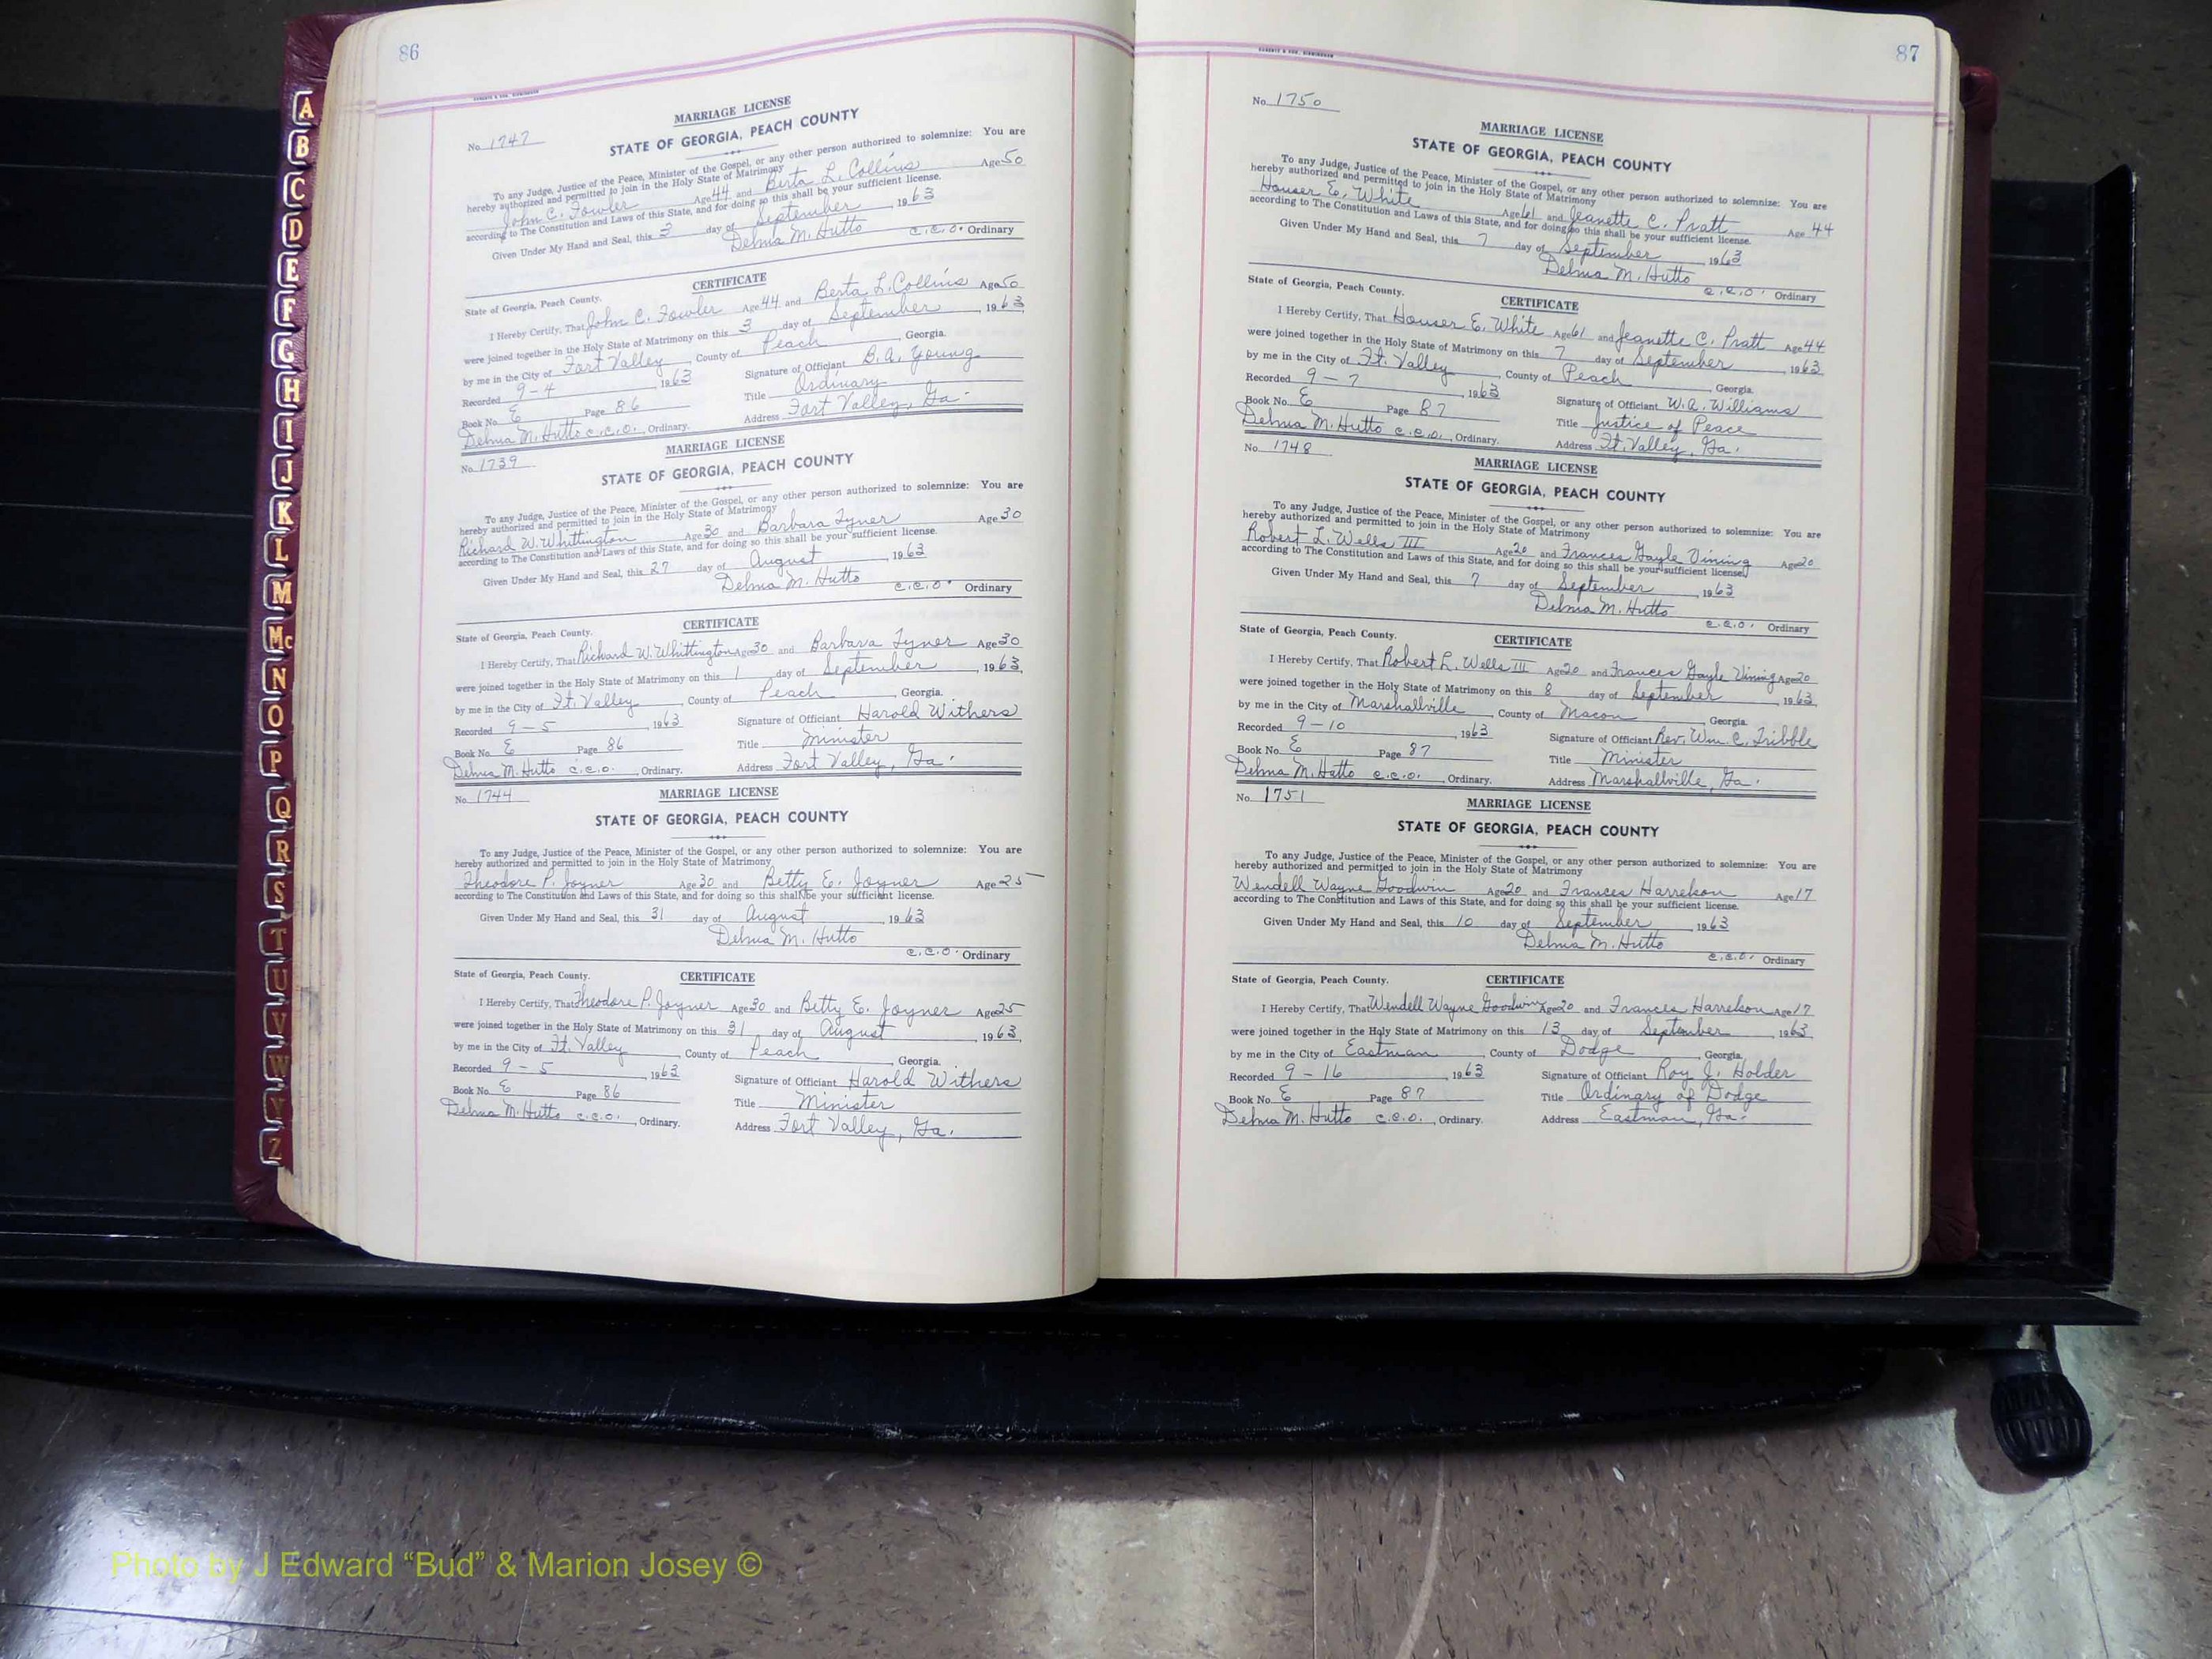 86
MARRIAGE LICENSE
No. 1747
STATE OF GEORGIA, PEACH COUNTY
To any Judge, Justice of the Peace, Minister of the Gospel, or any other person authorized to solemnize: You are
hereby authorized and permitted to join in the Holy State of Matrimony
John C. Fowler Age 44 and Berta L. Collins Age 50
according to The Constitution and Laws of this State, and for doing so this shall be your sufficient license.
Given Under My Hand and Seal, this 3 day of September 1963
Delma M. Hutto C.C.O. Ordinary
CERTIFICATE
State of Georgia, Peach County.
I Hereby Certify, That John C. Fowler Age 44 and Berta L. Collins Age 50
were joined together in the Holy State of Matrimony on this 3 day of September, 1963,
by me in the City of Fort Valley, County of Peach, Georgia.
Recorded 9-4, 1963 Signature of Officiant B.A. Young
Book No. E Page 86 Title Ordinary
Delma M. Hutto C.C.O., Ordinary. Address Fort Valley, Ga.
MARRIAGE LICENSE
No. 1739
STATE OF GEORGIA, PEACH COUNTY
To any Judge, Justice of the Peace, Minister of the Gospel, or any other person authorized to solemnize: You are
hereby authorized and permitted to join in the Holy State of Matrimony
Richard W. Whittington Age 30 and Barbara Tyner Age 30
according to The Constitution and Laws of this State, and for doing so this shall be your sufficient license.
Given Under My Hand and Seal, this 27 day of August, 1963
Delma M. Hutto
C.C.O. Ordinary
CERTIFICATE
State of Georgia, Peach County.
I Hereby Certify, That Richard W. Whittington Age 30 and Barbara Tyner Age 30
were joined together in the Holy State of Matrimony on this 1 day of September, 1963,
by me in the City of Ft. Valley, County of Peach, Georgia.
Recorded 9-5, 1963 Signature of Officiant Harold Withers
Book No. E Page 86 Title Minister
Delma M. Hutto C.C.O., Ordinary. Address Fort Valley, Ga.
No. 1744 MARRIAGE LICENSE
STATE OF GEORGIA, PEACH COUNTY
To any Judge, Justice of the Peace, Minister of the Gospel, or any other person authorized to solemnize: You are
hereby authorized and permitted to join in the Holy State of Matrimony
Theodore P. Joyner Age 30 and Betty E. Joyner Age 25
according to The Constitution and Laws of this State, and for doing so this shall be your sufficient license.
Given Under My Hand and Seal, this 31 day of August, 1963
Delma M. Hutto
C.C.O. Ordinary
State of Georgia, Peach County. CERTIFICATE
I Hereby Certify, That Theodore P. Joyner Age 30 and Betty E. Joyner Age 25
were joined together in the Holy State of Matrimony on this 31 day of August, 1963,
by me in the City of Ft. Valley, County of Peach, Georgia.
Recorded 9-5, 1963 Signature of Officiant Harold Withers
Book No. E Page 86 Title Minister
Delma M. Hutto C.C.O., Ordinary. Address Fort Valley, Ga.
87
No. 1750
MARRIAGE LICENSE
STATE OF GEORGIA, PEACH COUNTY
To any Judge, Justice of the Peace, Minister of the Gospel, or any other person authorized to solemnize: You are
hereby authorized and permitted to join in the Holy State of Matrimony
Houser E. White Age 61 and Jeanette C. Pratt Age 44
according to The Constitution and Laws of this State, and for doing so this shall be your sufficient license.
Given Under My Hand and Seal, this 7 day of September, 1963
Delma M. Hutto
C.C.O. Ordinary
State of Georgia, Peach County.
CERTIFICATE
I Hereby Certify, That Houser E. White Age 61 and Jeanette C. Pratt Age 44
were joined together in the Holy State of Matrimony on this 7 day of September, 1963,
by me in the City of Ft. Valley, County of Peach, Georgia.
Recorded 9-7, 1963 Signature of Officiant W.A. Williams
Book No. E Page 87 Title Justice of Peace
Delma M. Hutto C.C.O., Ordinary. Address Ft. Valley, Ga.
No. 1748
MARRIAGE LICENSE
STATE OF GEORGIA, PEACH COUNTY
To any Judge, Justice of the Peace, Minister of the Gospel, or any other person authorized to solemnize: You are
hereby authorized and permitted to join in the Holy State of Matrimony
Robert L. Wells III Age 20 and Frances Gayle Vining Age 20
according to The Constitution and Laws of this State, and for doing so this shall be your sufficient license.
Given Under My Hand and Seal, this 7 day of September, 1963
Delma M. Hutto
C.C.O. Ordinary
State of Georgia, Peach County. CERTIFICATE
I Hereby Certify, That Robert L. Wells III Age 20 and Frances Gayle Vining Age 20
were joined together in the Holy State of Matrimony on this 8 day of September, 1963,
by me in the City of Marshallville, County of Macon, Georgia.
Recorded 9-10, 1963 Signature of Officiant Rev. Wm. C. Tribble
Book No. E Page 87 Title Minister
Delma M. Hutto C.C.O., Ordinary. Address Marshallville, Ga.
No. 1751
MARRIAGE LICENSE
STATE OF GEORGIA, PEACH COUNTY
To any Judge, Justice of the Peace, Minister of the Gospel, or any other person authorized to solemnize: You are
hereby authorized and permitted to join in the Holy State of Matrimony
Wendell Wayne Goodwin Age 20 and Frances Harrelson Age 17
according to The Constitution and Laws of this State, and for doing so this shall be your sufficient license.
Given Under My Hand and Seal, this 10 day of September, 1963
Delma M. Hutto
C.C.O. Ordinary
State of Georgia, Peach County. CERTIFICATE
I Hereby Certify, That Wendell Wayne Goodwin Age 20 and Frances Harrelson Age 17
were joined together in the Holy State of Matrimony on this 13 day of September, 1963,
by me in the City of Eastman, County of Dodge, Georgia.
Recorded 9-16, 1963 Signature of Officiant Roy J. Holder
Book No. E Page 87 Title Ordinary of Dodge
Delma M. Hutto C.C.O., Ordinary. Address Eastman, Ga.
A
B
C
D
E
F
G
H
I
J
K
L
M
Mc
N
O
P
Q
R
S
T
U
V
W
Y
Z
Photo by J Edward “Bud” & Marion Josey ©